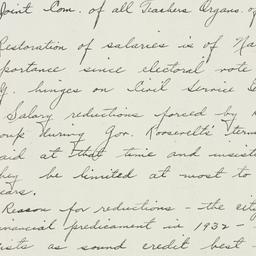 Joint Com. of all Teachers Organs. of
Restoration of salaries is of Na
portance since electoral vote
y. hinges on Civil Service
Salary reductions forced by
oup during Gov. Roosevelts' term
aid at that time and insiste
hey be limited at most to
ears.
Reason for reductions - the city
inancial predicament in 1932 -
ists as sound credit best -